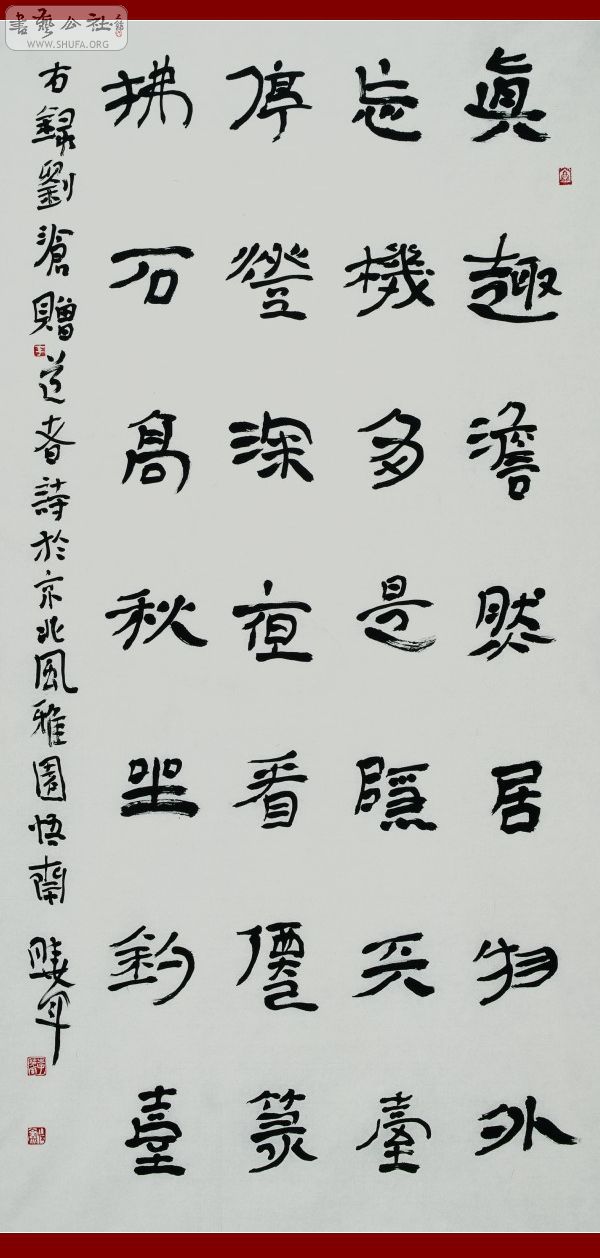 書藝公社
WWW.SHUFA.ORG
眞趣澹然居物外
忘機多是隱天臺
停燈深夜看僊篆
拂石高秋坐釣臺
右錄劉滄贈道者詩於京北風雅園悟齋